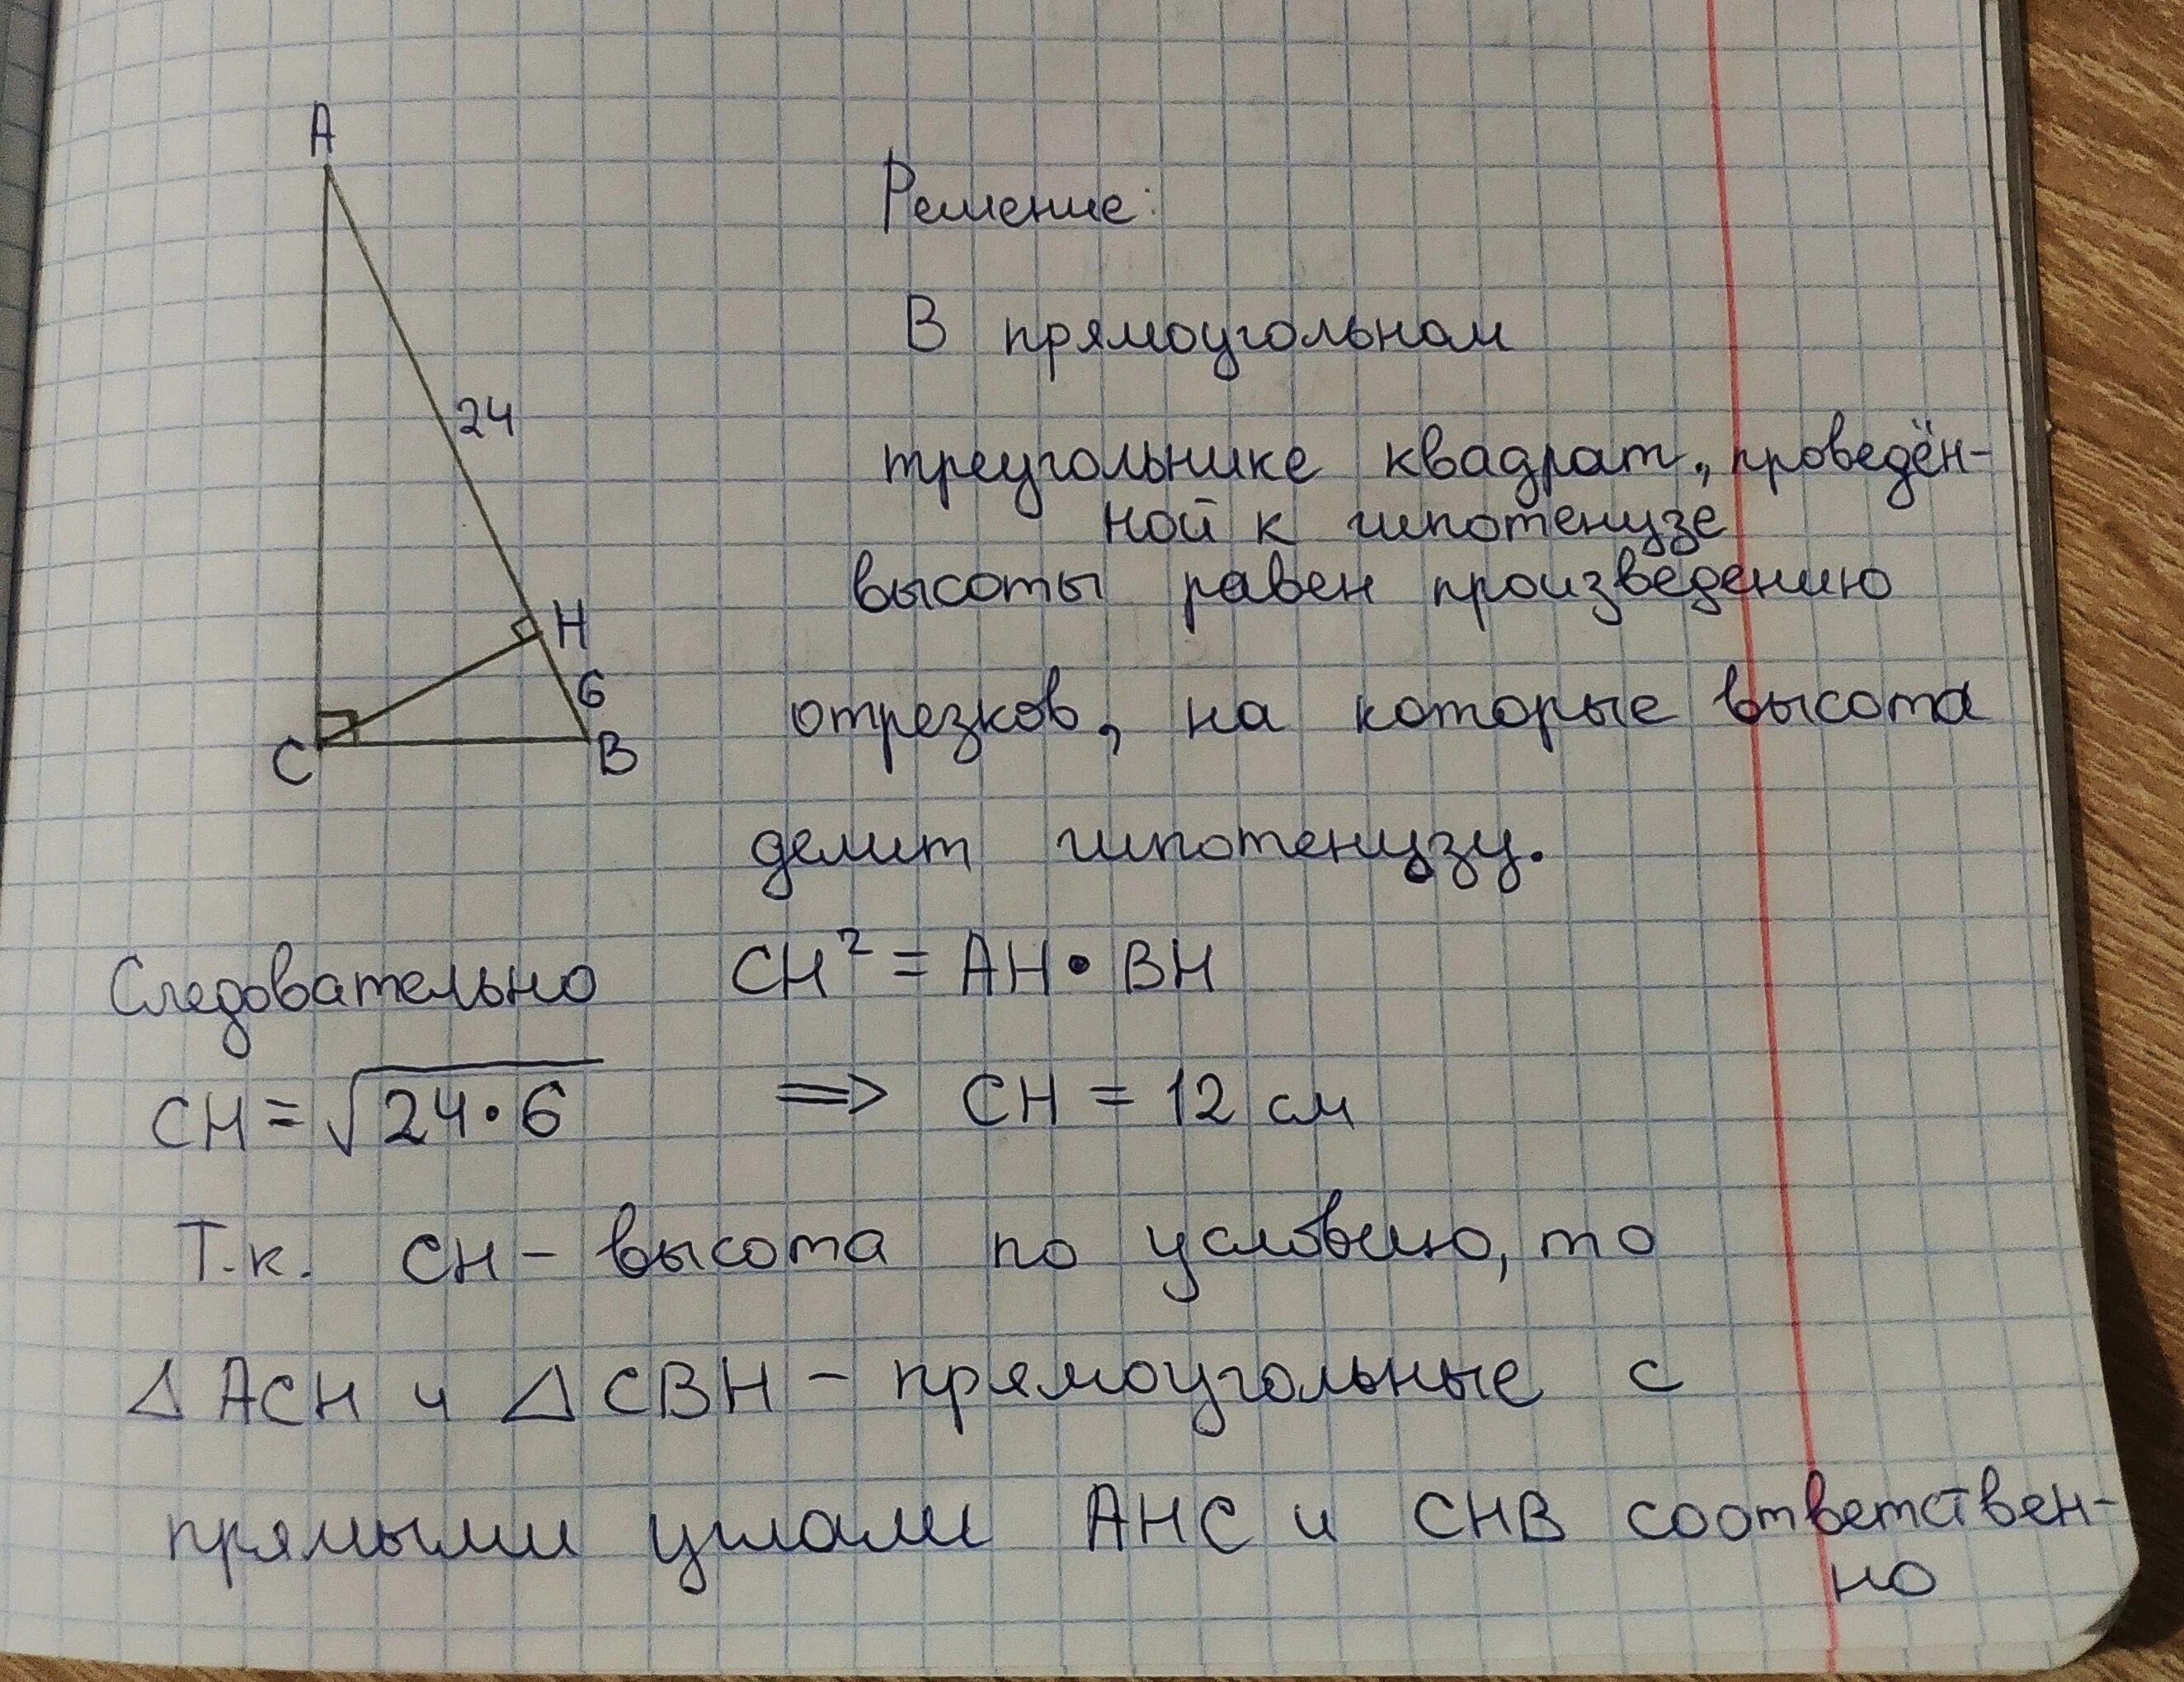 A
Решение:
В прямоугольном
24
треугольнике квадрат, проведён-
ной к гипотенузе
H
высоты равен произведению
6
отрезков, на которые высота
C
B
делит гипотенузу.
Следовательно CH² = AH • BH
CH = √24•6 ⟹ CH = 12 см
Т.к. CH – высота по условию, то
△ ACH и △ CBH – прямоугольные с
прямыми углами AHC и CHB соответствен-
но